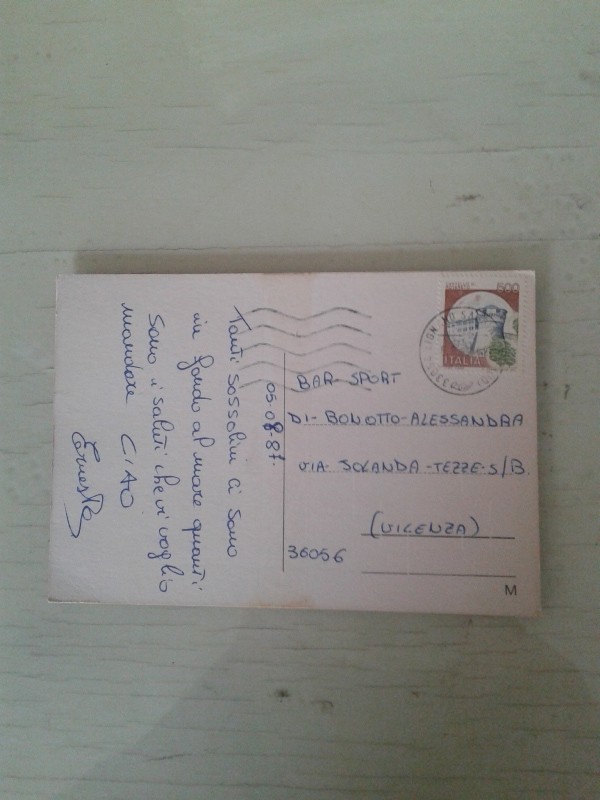 05.08.87.
Tanti sassolini ci sono
in fondo al mare quanti
sono i saluti che vi voglio
mandare CIAO
500
ITALIA
BAR SPORT
DI-BONOTTO-ALESSANDRA
VIA-JOLANDA-TEZZE-S/B.
(VICENZA)
36056
M